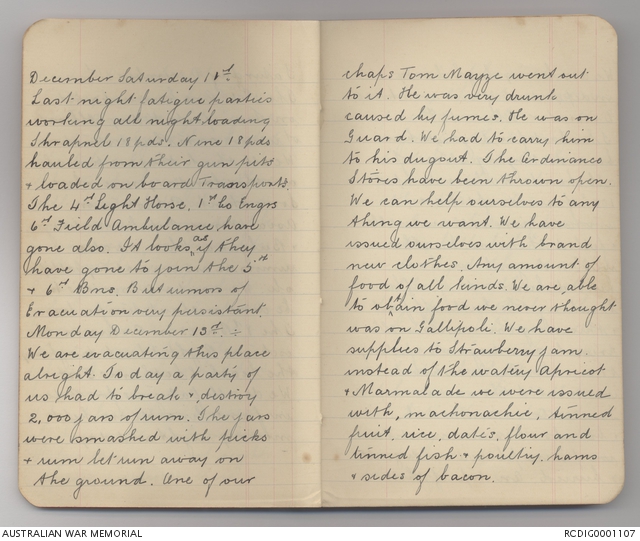 December Saturday 11th.
Last night fatigue parties
working all night loading
Shrapnel 18 pds. Nine 18 pds
hauled from their gun pits
+ loaded on board Transports.
The 4th Light Horse, 1st Co Engrs
6th Field Ambulance have
gone also. It looks as if they
have gone to join the 5th
+ 6th Bns. But rumors of
Evacuation very persistant.
Monday December 13th. ÷
We are evacuating this place
alright. To day a party of
us had to break + destroy
2,000 jars of rum. The jars
were smashed with picks
+ rum let run away on
the ground. One of our
chaps Tom Mayze went out
to it. He was very drunk
caused by fumes. He was on
Guard. We had to carry him
to his dugout. The Ardinance
Stores have been thrown open.
We can help ourselves to any
thing we want. We have
issued ourselves with brand
new clothes. Any amount of
food of all kinds. We are able
to obtain food we never thought
was on Gallipoli. We have
supplies to Strawberry jam
instead of the watery Apricot
+ Marmalade we were issued
with, machonachie, tinned
fruit, rice, dates, flour and
tinned fish + poultry, hams
+ sides of bacon.
AUSTRALIAN WAR MEMORIAL
RCDIG0001107